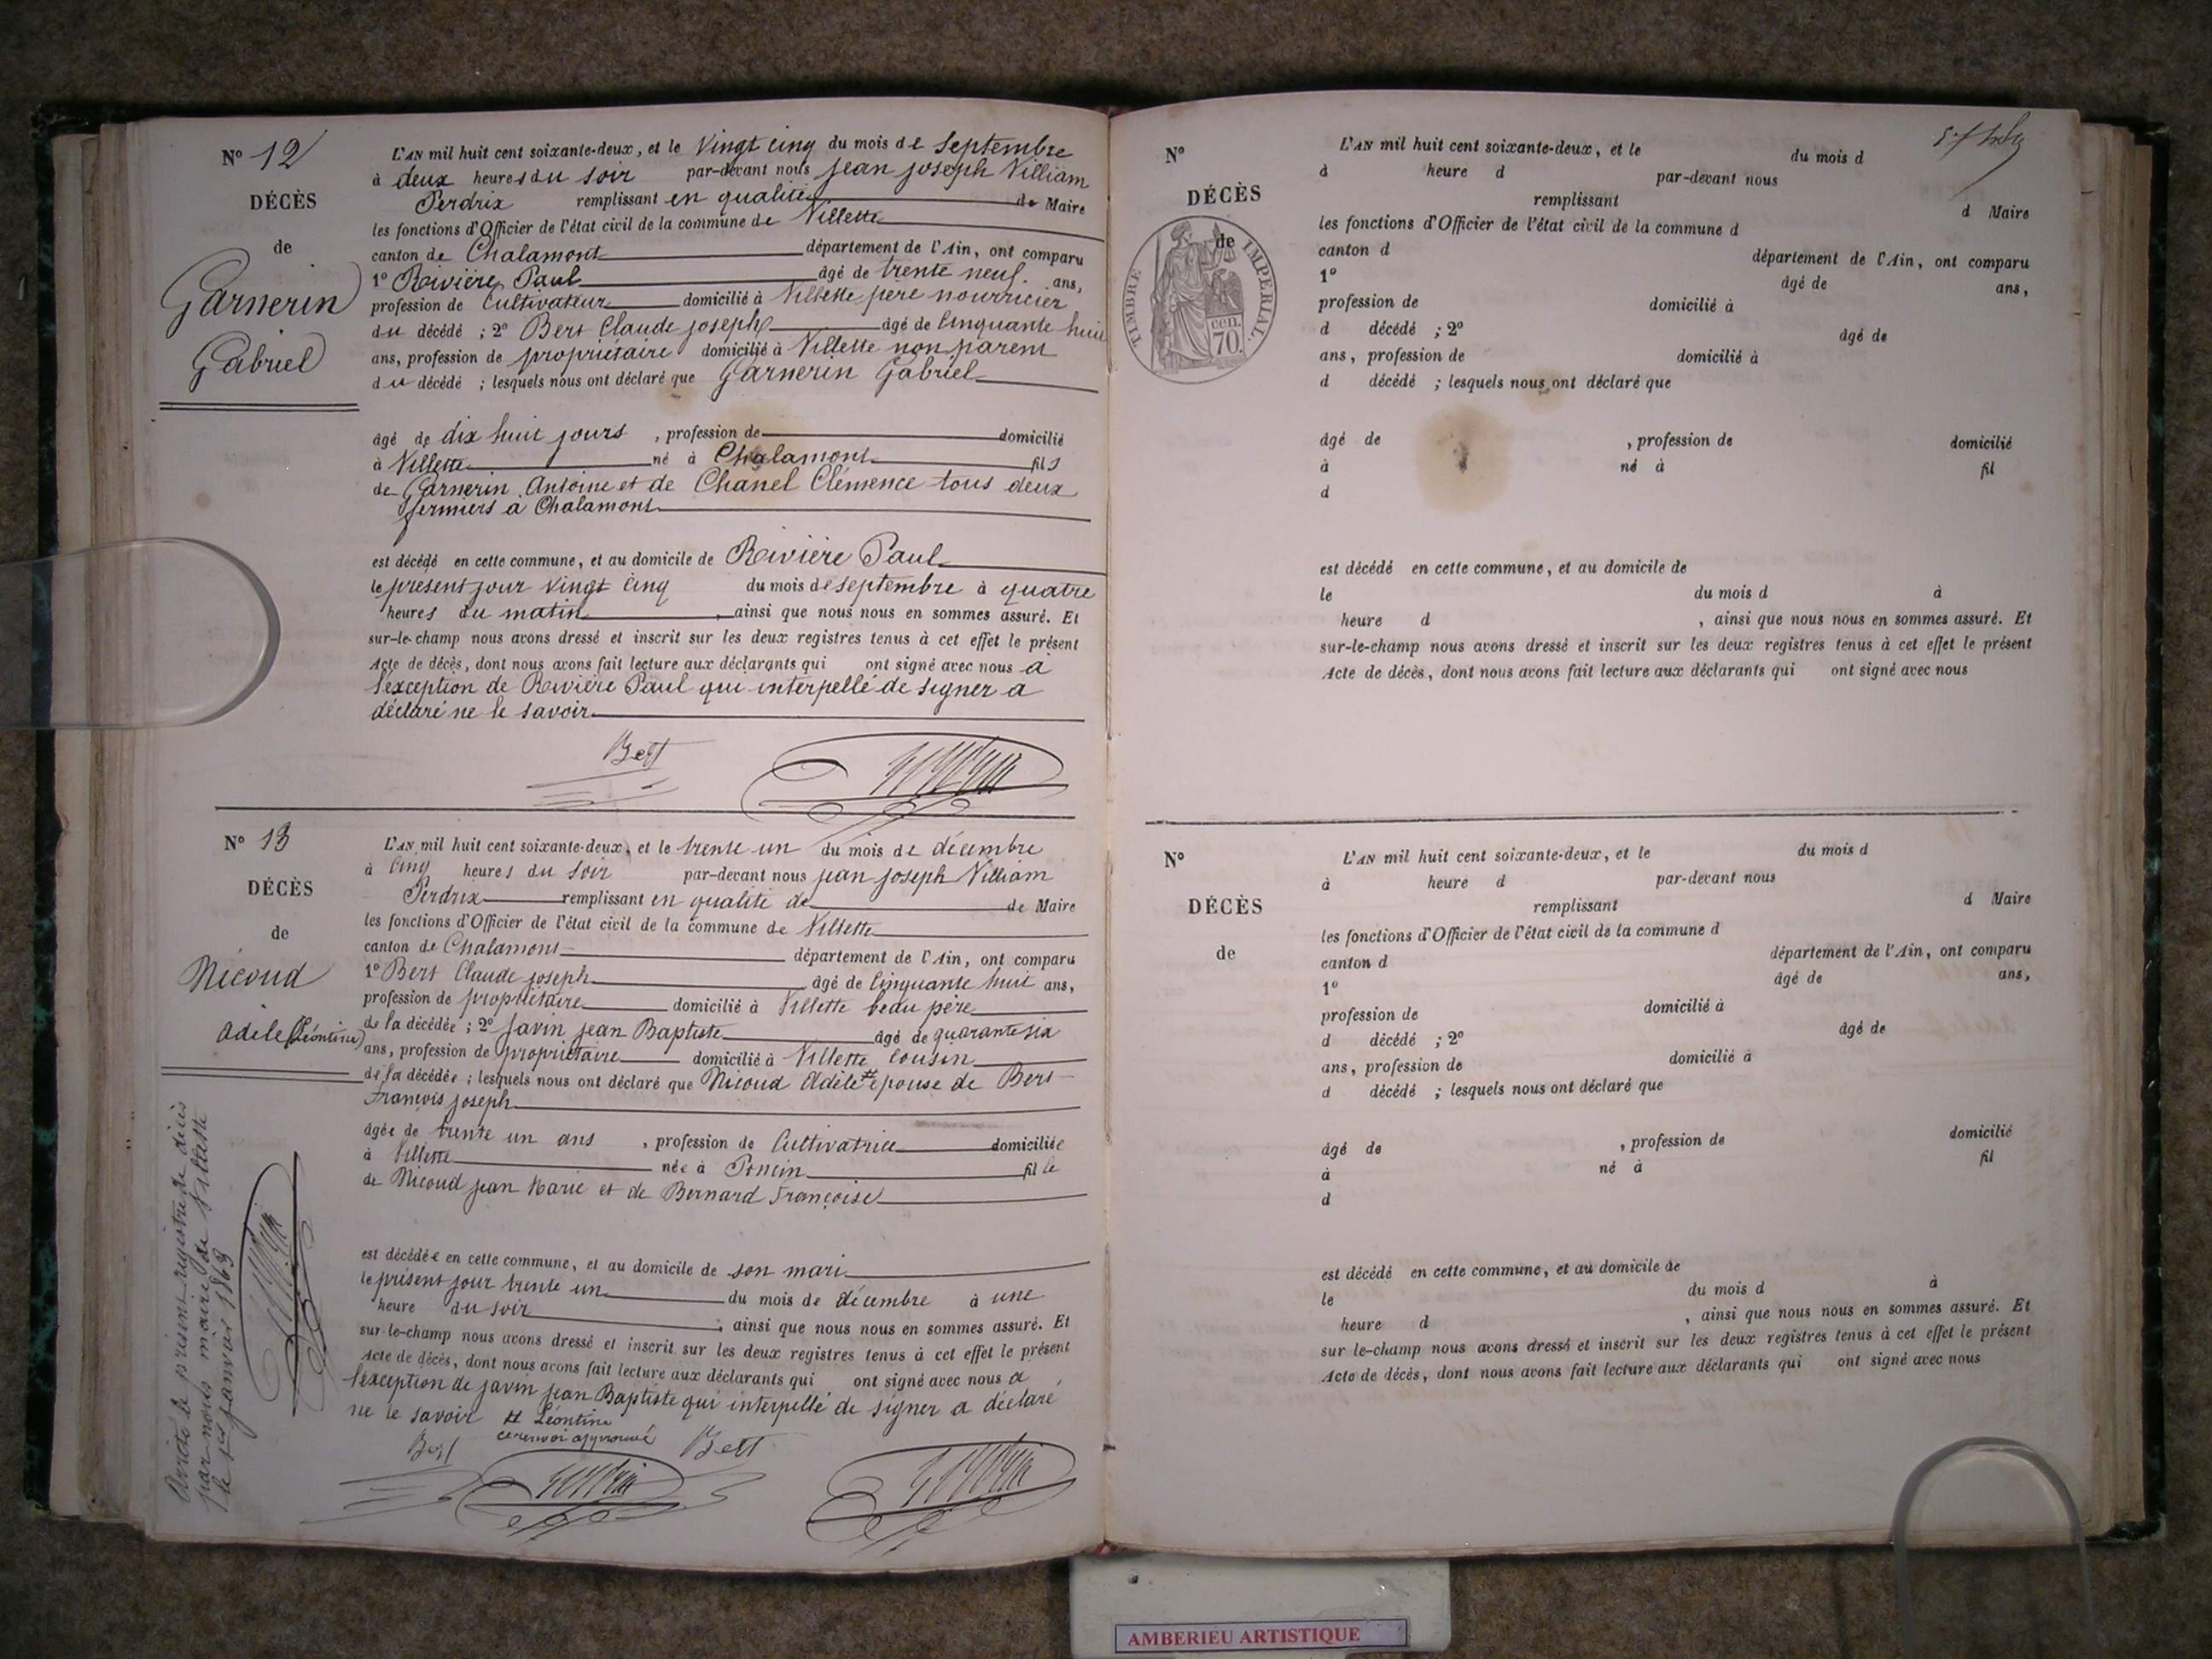 N° 12
DÉCÈS
de
Garnerin
Gabriel
L'AN mil huit cent soixante-deux, et le Vingt cinq du mois de Septembre
à deux heures du soir par-devant nous jean joseph Villiam
Perdrix remplissant en qualité de Maire
les fonctions d'Officier de l'état civil de la commune de Villette
canton de Chalamont département de l'Ain, ont comparu
1° Rivière Paul âgé de trente neuf ans,
profession de Cultivateur domicilié à Villette père nourricier
du décédé ; 2° Bert Claude joseph âgé de Cinquante huit
ans, profession de propriétaire domicilié à Villette non parent
du décédé ; lesquels nous ont déclaré que Garnerin Gabriel
âgé de dix huit jours , profession de domicilié
à Villette né à Chalamont fils
de Garnerin Antoine et de Chanel Clémence tous deux
fermiers à Chalamont
est décédé en cette commune, et au domicile de Rivière Paul
le présent jour vingt cinq du mois de septembre à quatre
heures du matin , ainsi que nous nous en sommes assuré. Et
sur-le-champ nous avons dressé et inscrit sur les deux registres tenus à cet effet le présent
Acte de décès, dont nous avons fait lecture aux déclarants qui ont signé avec nous a
l'exception de Rivière Paul qui interpellé de signer a
déclaré ne le savoir
Bert
N° 13
DÉCÈS
de
Nicoud
adèle (Léontine)
L'AN mil huit cent soixante-deux, et le trente un du mois de décembre
à Cinq heures du soir par-devant nous jean joseph Villiam
Perdrix remplissant en qualité de de Maire
les fonctions d'Officier de l'état civil de la commune de Villette
canton de Chalamont département de l'Ain, ont comparu
1° Bert Claude joseph âgé de Cinquante huit ans,
profession de propriétaire domicilié à Villette beau père
de la décédée ; 2° Javin jean Baptiste âgé de quarante six
ans, profession de propriétaire domicilié à Villette Cousin
de la décédée ; lesquels nous ont déclaré que Nicoud Adèle # épouse de Bert
François joseph
âgée de trente un ans , profession de Cultivatrice domiciliée
à Villette née à Poncin fille
de Nicoud jean Marie et de Bernard Françoise
est décédée en cette commune, et au domicile de son mari
le présent jour trente un du mois de décembre à une
heure du soir , ainsi que nous nous en sommes assuré. Et
sur-le-champ nous avons dressé et inscrit sur les deux registres tenus à cet effet le présent
Acte de décès, dont nous avons fait lecture aux déclarants qui ont signé avec nous a
l'exception de javin jean Baptiste qui interpellé de signer a déclaré
ne le savoir # Léontine
ce renvoi approuvé
Bert Bert
Arrêté le présent registre de décès
par nous maire de Villette
le 1er janvier 1863
N°
DÉCÈS
de
TIMBRE IMPÉRIAL.
70 cen.
L'AN mil huit cent soixante-deux, et le du mois d
à heure d par-devant nous
remplissant d Maire
les fonctions d'Officier de l'état civil de la commune d
canton d département de l'Ain, ont comparu
1° âgé de ans,
profession de domicilié à
d décédé ; 2° âgé de
ans, profession de domicilié à
d décédé ; lesquels nous ont déclaré que
âgé de , profession de domicilié
à né à fil
d
est décédé en cette commune, et au domicile de
le du mois d à
heure d , ainsi que nous nous en sommes assuré. Et
sur-le-champ nous avons dressé et inscrit sur les deux registres tenus à cet effet le présent
Acte de décès, dont nous avons fait lecture aux déclarants qui ont signé avec nous
N°
DÉCÈS
de
L'AN mil huit cent soixante-deux, et le du mois d
à heure d par-devant nous
remplissant d Maire
les fonctions d'Officier de l'état civil de la commune d
canton d département de l'Ain, ont comparu
1° âgé de ans,
profession de domicilié à
d décédé ; 2° âgé de
ans, profession de domicilié à
d décédé ; lesquels nous ont déclaré que
âgé de , profession de domicilié
à né à fil
d
est décédé en cette commune, et au domicile de
le du mois d à
heure d , ainsi que nous nous en sommes assuré. Et
sur le-champ nous avons dressé et inscrit sur les deux registres tenus à cet effet le présent
Acte de décès, dont nous avons fait lecture aux déclarants qui ont signé avec nous
AMBERIEU ARTISTIQUE